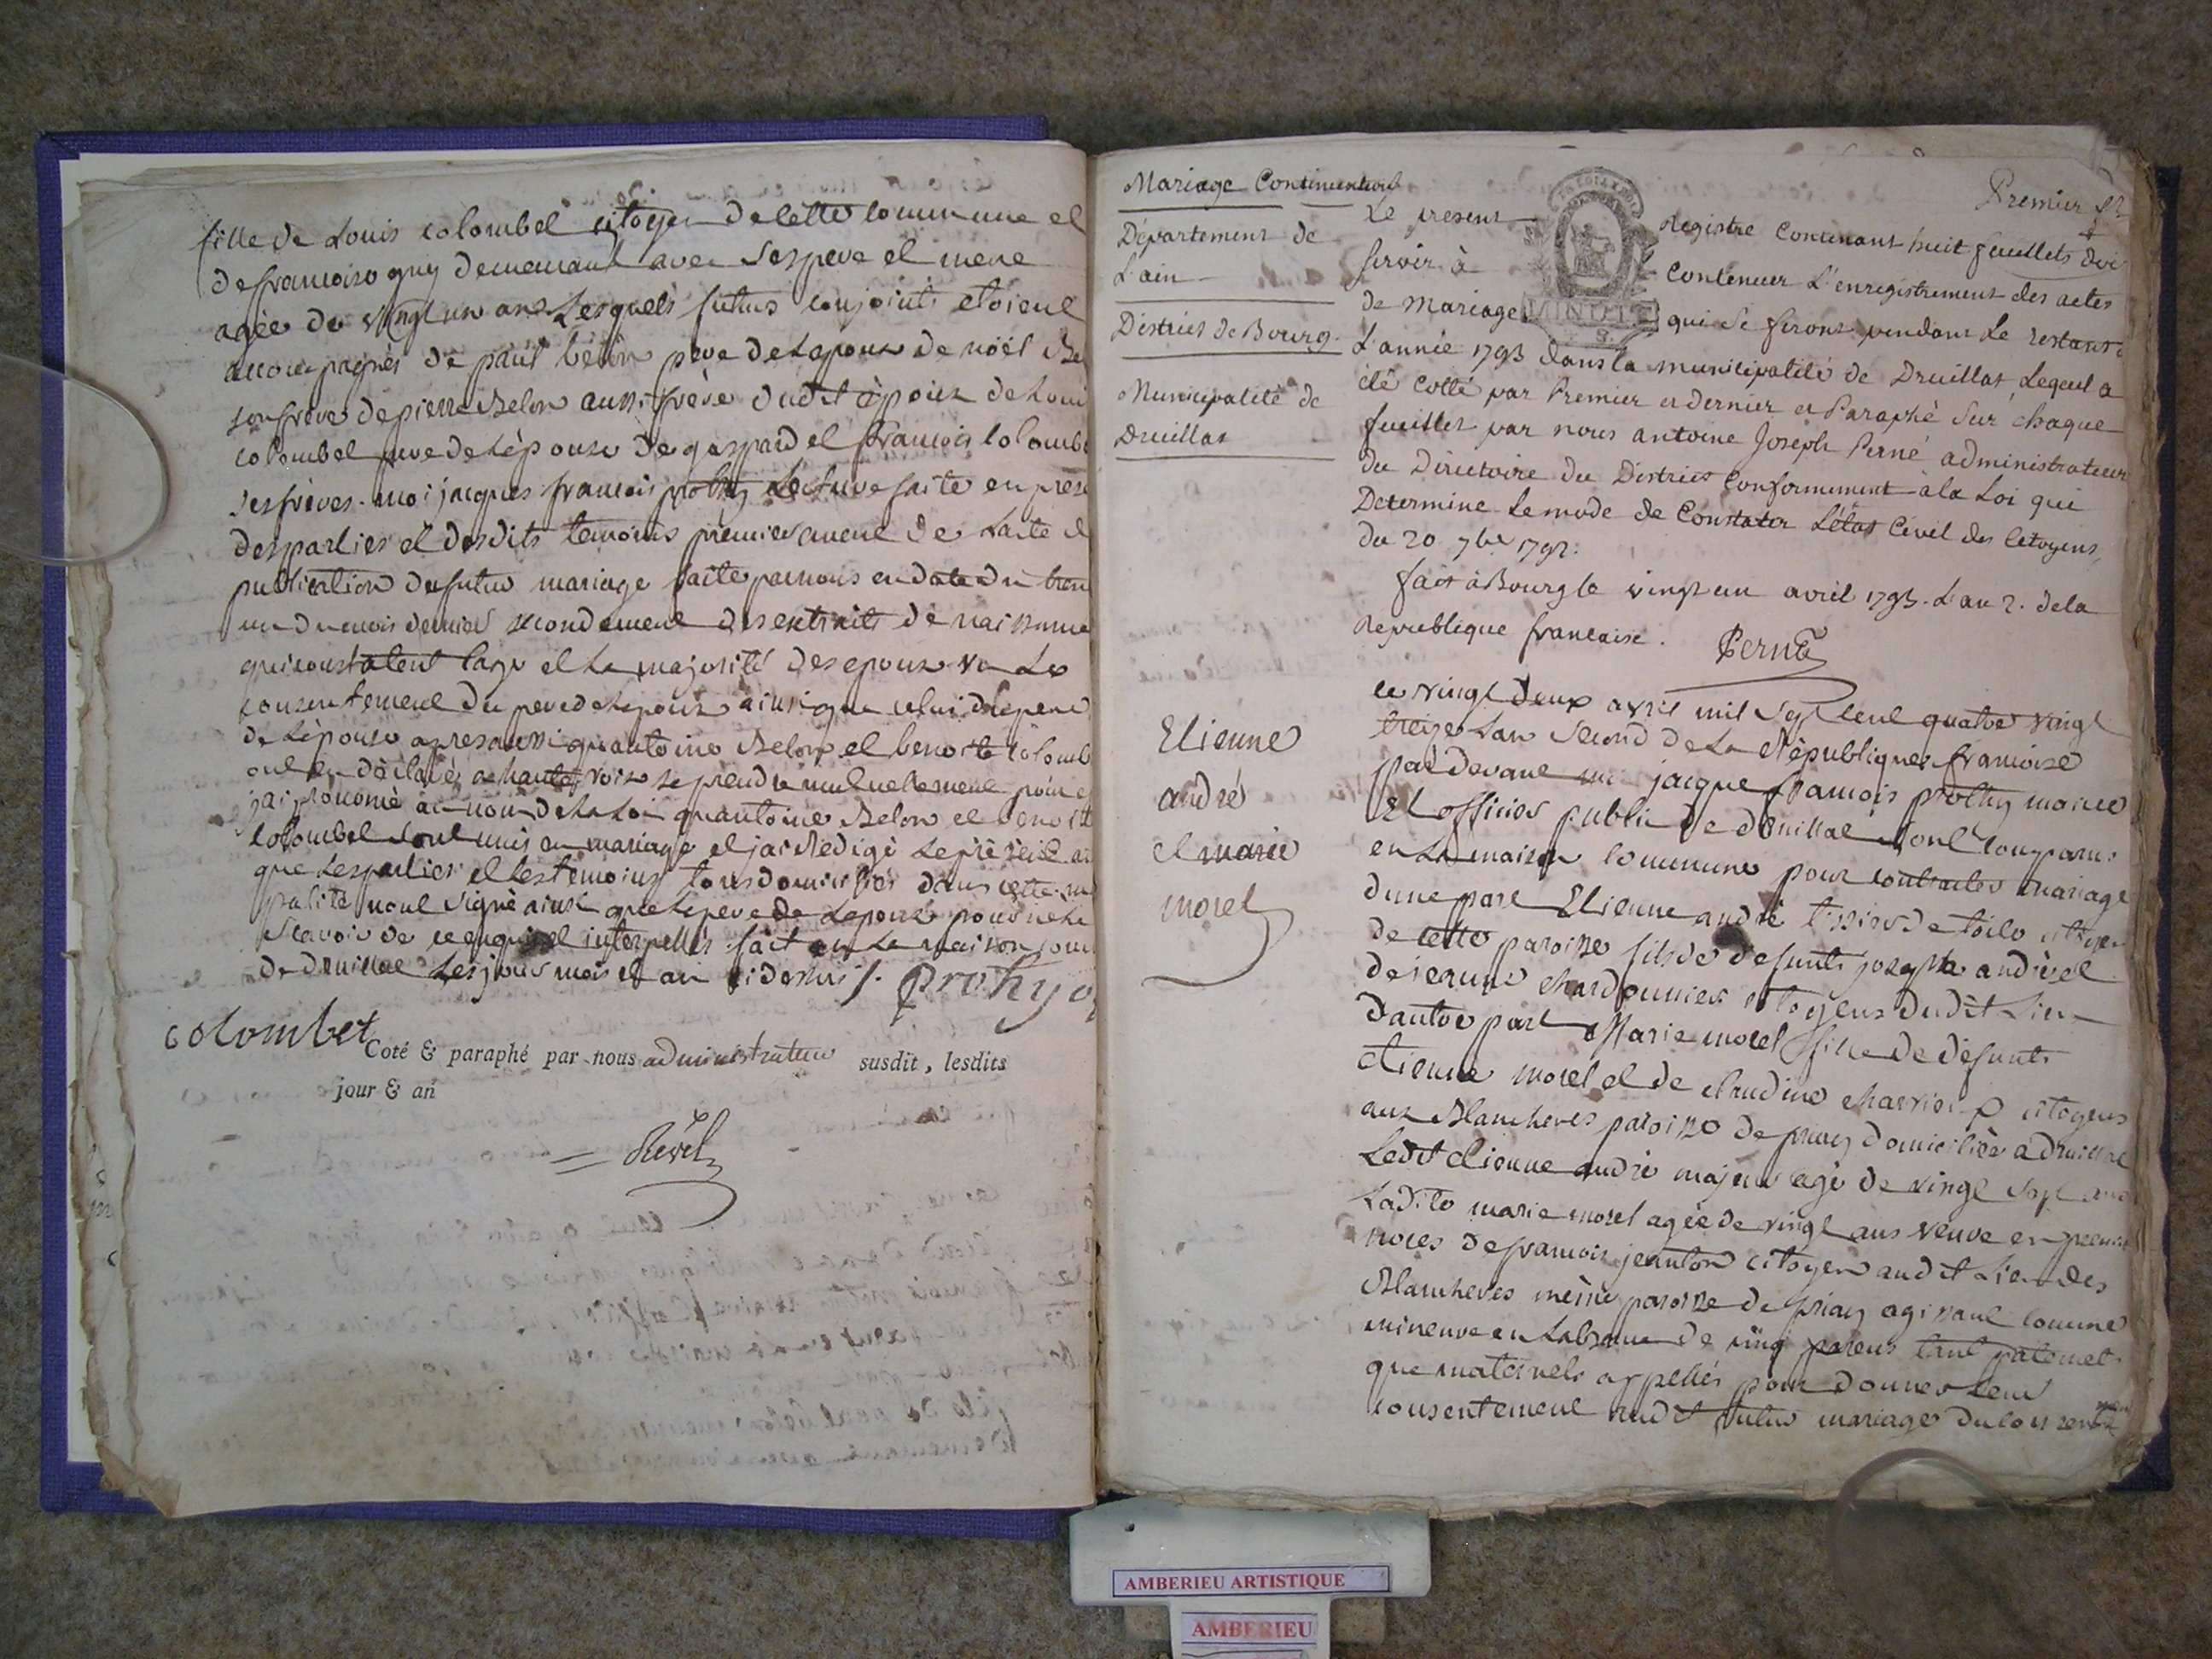 fille de Louis colombel citoyen de cette commune el
de francoise guy demeurant avec ses pere el mere
agée de vingt un ans Lesquels futurs conjoints etoient
accompagnés de paul belon pere de Lepoux de noël Be
son frere de pierre Belon aussi frère dudit époux de Loui
colombel pere de Lépouse de gaspard el francois colombe
ses frères. moi jacques francois prothy Lecture faite en prese
des parties el desdits temoins premierement de Lacte d
publication du futur mariage faite par nous en date du tren
un du mois dernier secondement des extraits de naissance
qui constatent lage el La majorité des epoux vu Le
consentement du pere de Lepoux ainsi que celui du pere
de Lépouse apres aussi qu'antoine Belon el benoite colomb
ont eu déclaré a haute voix se prendre mutuellement pour e
jai prononcé au nom de La Loi qu'antoine Belon el benoite
colombel sont unis en mariage el jai Redigé Le présent
que Les parties el Les temoins tous domiciliés dans cette mu
palité nont signé ainsi que Le pere de Lepoux pour ne Le
scavoir de ce enquis el interpellés. fait en La maison com
de druillat Les jour mois el an ci dessus /. prothy o
colombet
Coté & paraphé par nous administrateur susdit, lesdits
jour & an
= Revel
Premier ft
Mariage Continuation
Département de
L'ain
District de Bourg.
Municipalité de
Druillat
Le present Registre Contenant huit feuillets doit
servir à Continuer L'enregistrement des actes
de Mariage MINUTE qui se feront pendant Le restant
L'année 1793 dans la municipalité de Druillat Lequel a
été Cotté par Premier et dernier et Paraphé Sur chaque
feuillet par nous antoine Joseph Perné administrateur
du Directoire du District Conformement à la Loi qui
Determine Le mode de Constater L'état Civil des Citoyens
du 20 7bre 1792.
fait à Bourg le vingt un avril 1793. L'an 2. de la
republique francaise. Perné
Etienne
andré
el marie
morel
ce vingt deux avril mil sept cent quatre vingt
treize Lan second de La République francoise
par devant moi jacque francois prothy maire
El officier public de druillat sont comparus
en La maison commune pour contracter mariage
dune part Etienne andré tissier de toile citoyen
de cette paroisse fils de defunts joseph andré el
de jeanne chardonnier citoyens dudit Lieu
dautre part Marie morel fille de défunts
Etienne morel el de claudine charvier citoyens
aux Blancheres paroisse de priay domiciliée a druillat
Ledit etienne andré majeur agé de vingt sept ans
Ladite marie morel agée de vingt ans veuve en premier
noces de francois jeanton citoyen audit Lieu des
Blancheres même paroisse de priay agissant comme
mineure en Labsence de cinq parens tant paternel
que maternels appellés pour donner Leur
consentement audit futur mariage du consente